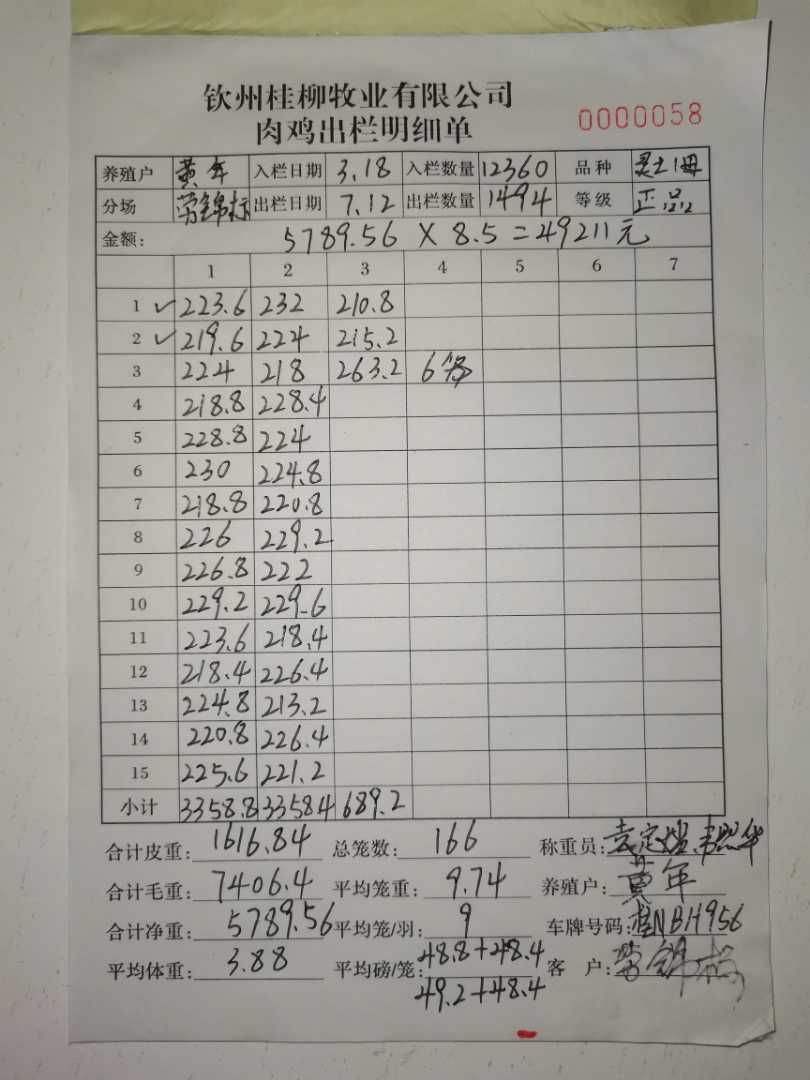 钦州桂柳牧业有限公司
肉鸡出栏明细单 0000058
养殖户 黄年 入栏日期 3.18 入栏数量 12360 品种
分场 劳锦标 出栏日期 7.12 出栏数量 1494 等级 正品
金额: 5789.56 × 8.5 = 49211元
1 2 3 4 5 6 7
1 ✓ 223.6 232 210.8
2 ✓ 219.6 224 215.2
3 224 218 263.2 6
4 218.8 228.4
5 228.8 224
6 230 224.8
7 218.8 220.8
8 226 229.2
9 226.8 222
10 229.2 229.6
11 223.6 218.4
12 218.4 226.4
13 224.8 213.2
14 220.8 226.4
15 225.6 221.2
小计 3358.8 3358.4 689.2
合计皮重: 1616.84 总笼数: 166 称重员:
合计毛重: 7406.4 平均笼重: 9.74 养殖户: 黄年
合计净重: 5789.56 平均笼/羽: 9 车牌号码: 桂NBH956
平均体重: 3.88 平均磅/笼: 48.8+48.4 客 户: 劳锦标
49.2+48.4